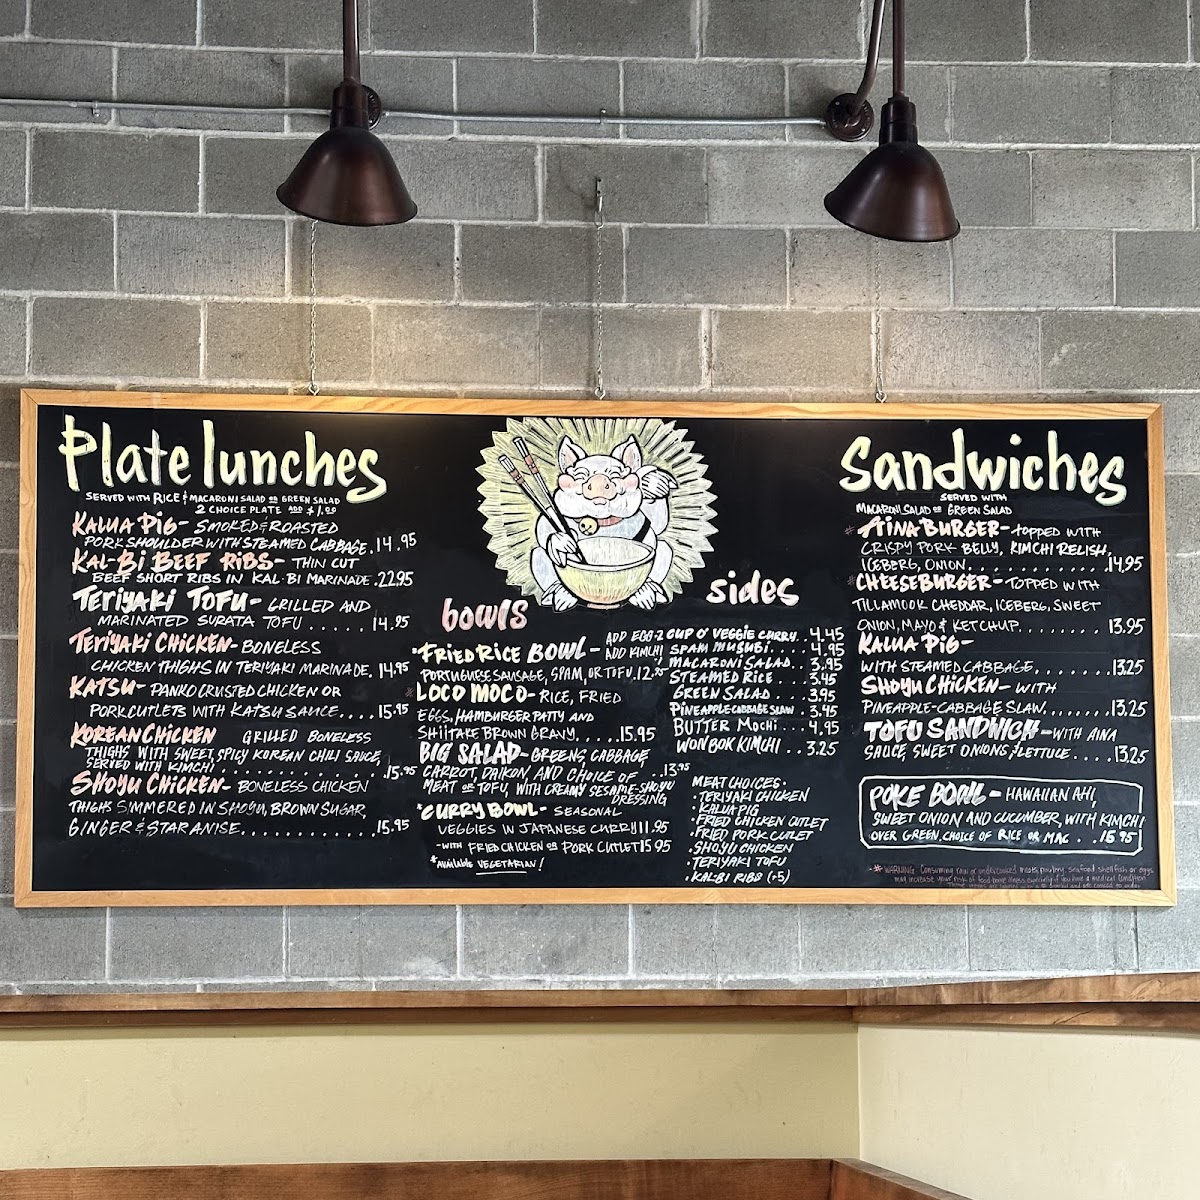 Plate lunches
SERVED WITH RICE & MACARONI SALAD OR GREEN SALAD
2 CHOICE PLATE ADD $1.00
KALUA PIG- SMOKED & ROASTED
PORK SHOULDER WITH STEAMED CABBAGE. 14.95
KAL-BI BEEF RIBS- THIN CUT
BEEF SHORT RIBS IN KAL-BI MARINADE. 22.95
TERIYAKI TOFU- GRILLED AND
MARINATED SURATA TOFU ..... 14.95
TERIYAKI CHICKEN- BONELESS
CHICKEN THIGHS IN TERIYAKI MARINADE. 14.95
KATSU- PANKO CRUSTED CHICKEN OR
PORK CUTLETS WITH KATSU SAUCE.... 15.95
KOREAN CHICKEN GRILLED BONELESS
THIGHS WITH SWEET, SPICY KOREAN CHILI SAUCE,
SERVED WITH KIMCHI .............. 15.95
SHOYU CHICKEN- BONELESS CHICKEN
THIGHS SIMMERED IN SHOYU, BROWN SUGAR,
GINGER & STAR ANISE............ 15.95
bowls
ADD EGG-2
ADD KIMCHI
*FRIED RICE BOWL-
PORTUGUESE SAUSAGE, SPAM, OR TOFU. 12.95
*LOCO MOCO- RICE, FRIED
EGGS, HAMBURGER PATTY AND
SHIITAKE BROWN GRAVY.....15.95
BIG SALAD- GREENS, CABBAGE,
CARROT, DAIKON, AND CHOICE OF ..13.95
MEAT OR TOFU, WITH CREAMY SESAME-SHOYU
DRESSING
*CURRY BOWL- SEASONAL
VEGGIES IN JAPANESE CURRY 11.95
-WITH FRIED CHICKEN OR PORK CUTLET 15.95
*AVAILABLE VEGETARIAN!
sides
CUP O' VEGGIE CURRY..4.45
SPAM MUSUBI....4.95
MACARONI SALAD..3.95
STEAMED RICE ...3.45
GREEN SALAD ...3.95
PINEAPPLE CABBAGE SLAW .. 3.45
BUTTER MOCHI ...4.95
WON BOK KIMCHI .. 3.25
MEAT CHOICES:
• TERIYAKI CHICKEN
• KALUA PIG
• FRIED CHICKEN CUTLET
• FRIED PORK CUTLET
• SHOYU CHICKEN
• TERIYAKI TOFU
• KAL-BI RIBS (+5)
Sandwiches
SERVED WITH
MACARONI SALAD OR GREEN SALAD
*AINA BURGER- TOPPED WITH
CRISPY PORK BELLY, KIMCHI RELISH,
ICEBERG, ONION...........14.95
*CHEESEBURGER- TOPPED WITH
TILLAMOOK CHEDDAR, ICEBERG, SWEET
ONION, MAYO & KETCHUP........13.95
KALUA PIG-
WITH STEAMED CABBAGE.........13.25
SHOYU CHICKEN- WITH
PINEAPPLE-CABBAGE SLAW........13.25
TOFU SANDWICH-WITH AINA
SAUCE, SWEET ONIONS & LETTUCE.....13.25
POKE BOWL- HAWAIIAN AHI,
SWEET ONION AND CUCUMBER, WITH KIMCHI
OVER GREEN. CHOICE OF RICE OR MAC...15.95
*WARNING: Consuming raw or undercooked meats, poultry, seafood, shellfish or eggs
may increase your risk of food borne illness especially if you have a medical condition